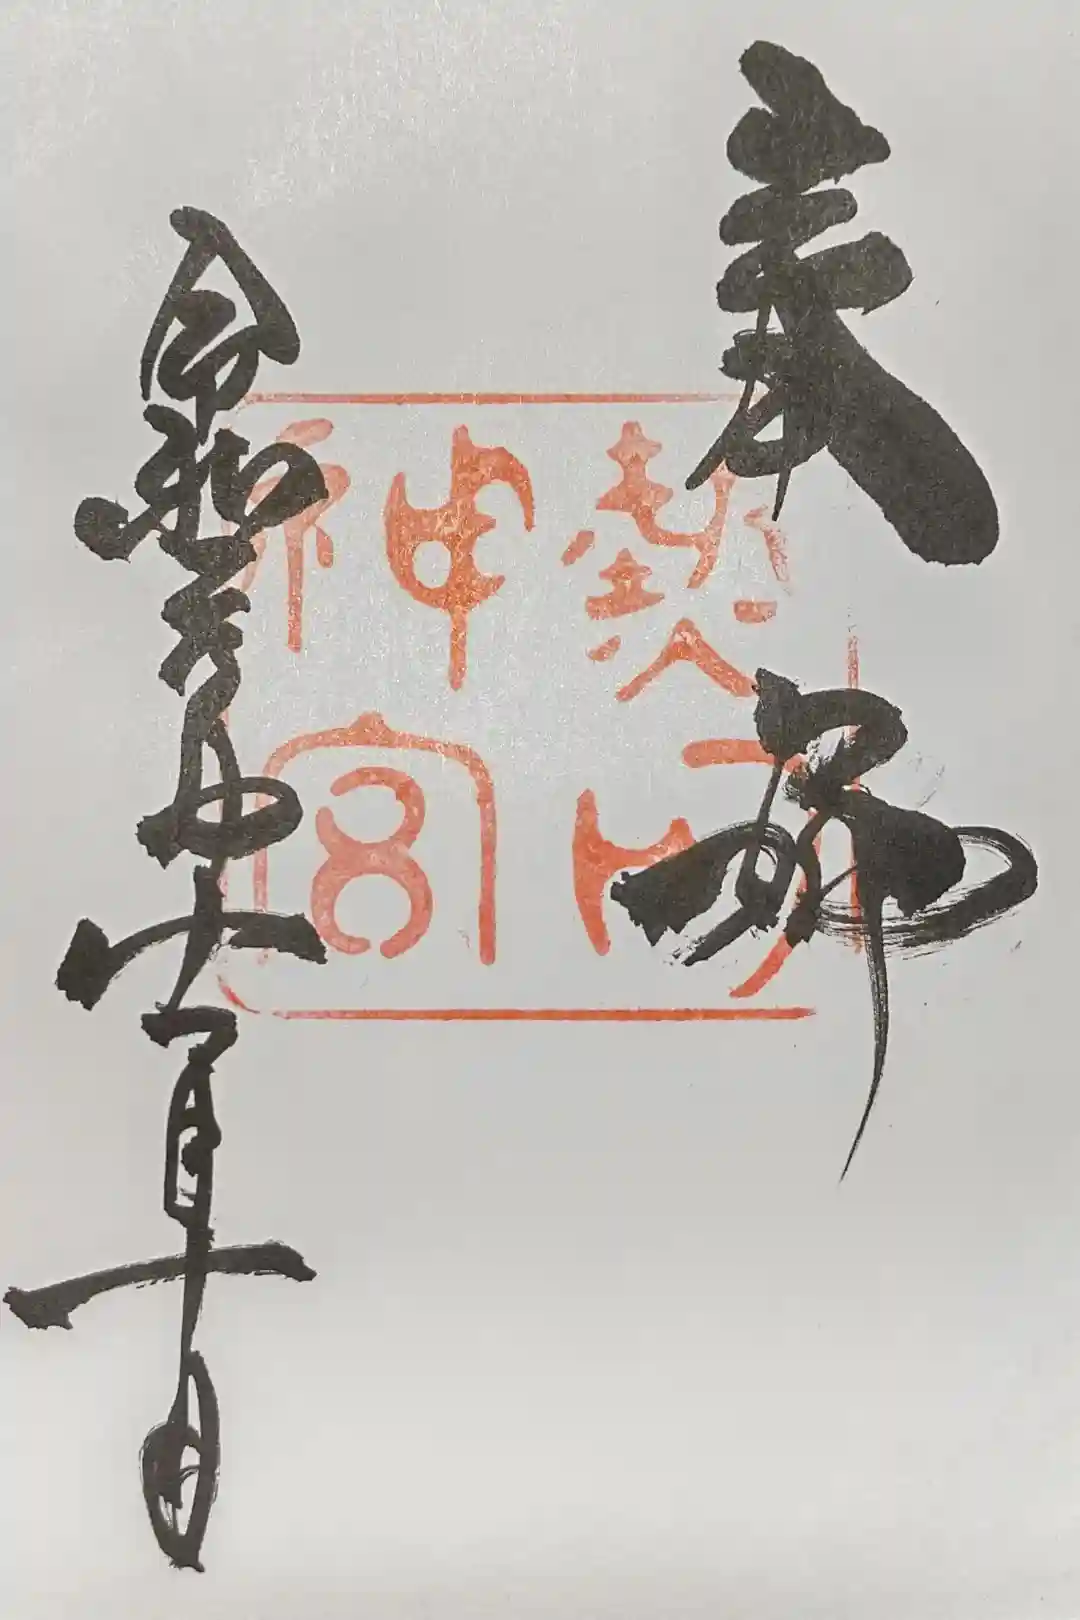 奉拝
熱田神宮
令和元年十一月十日